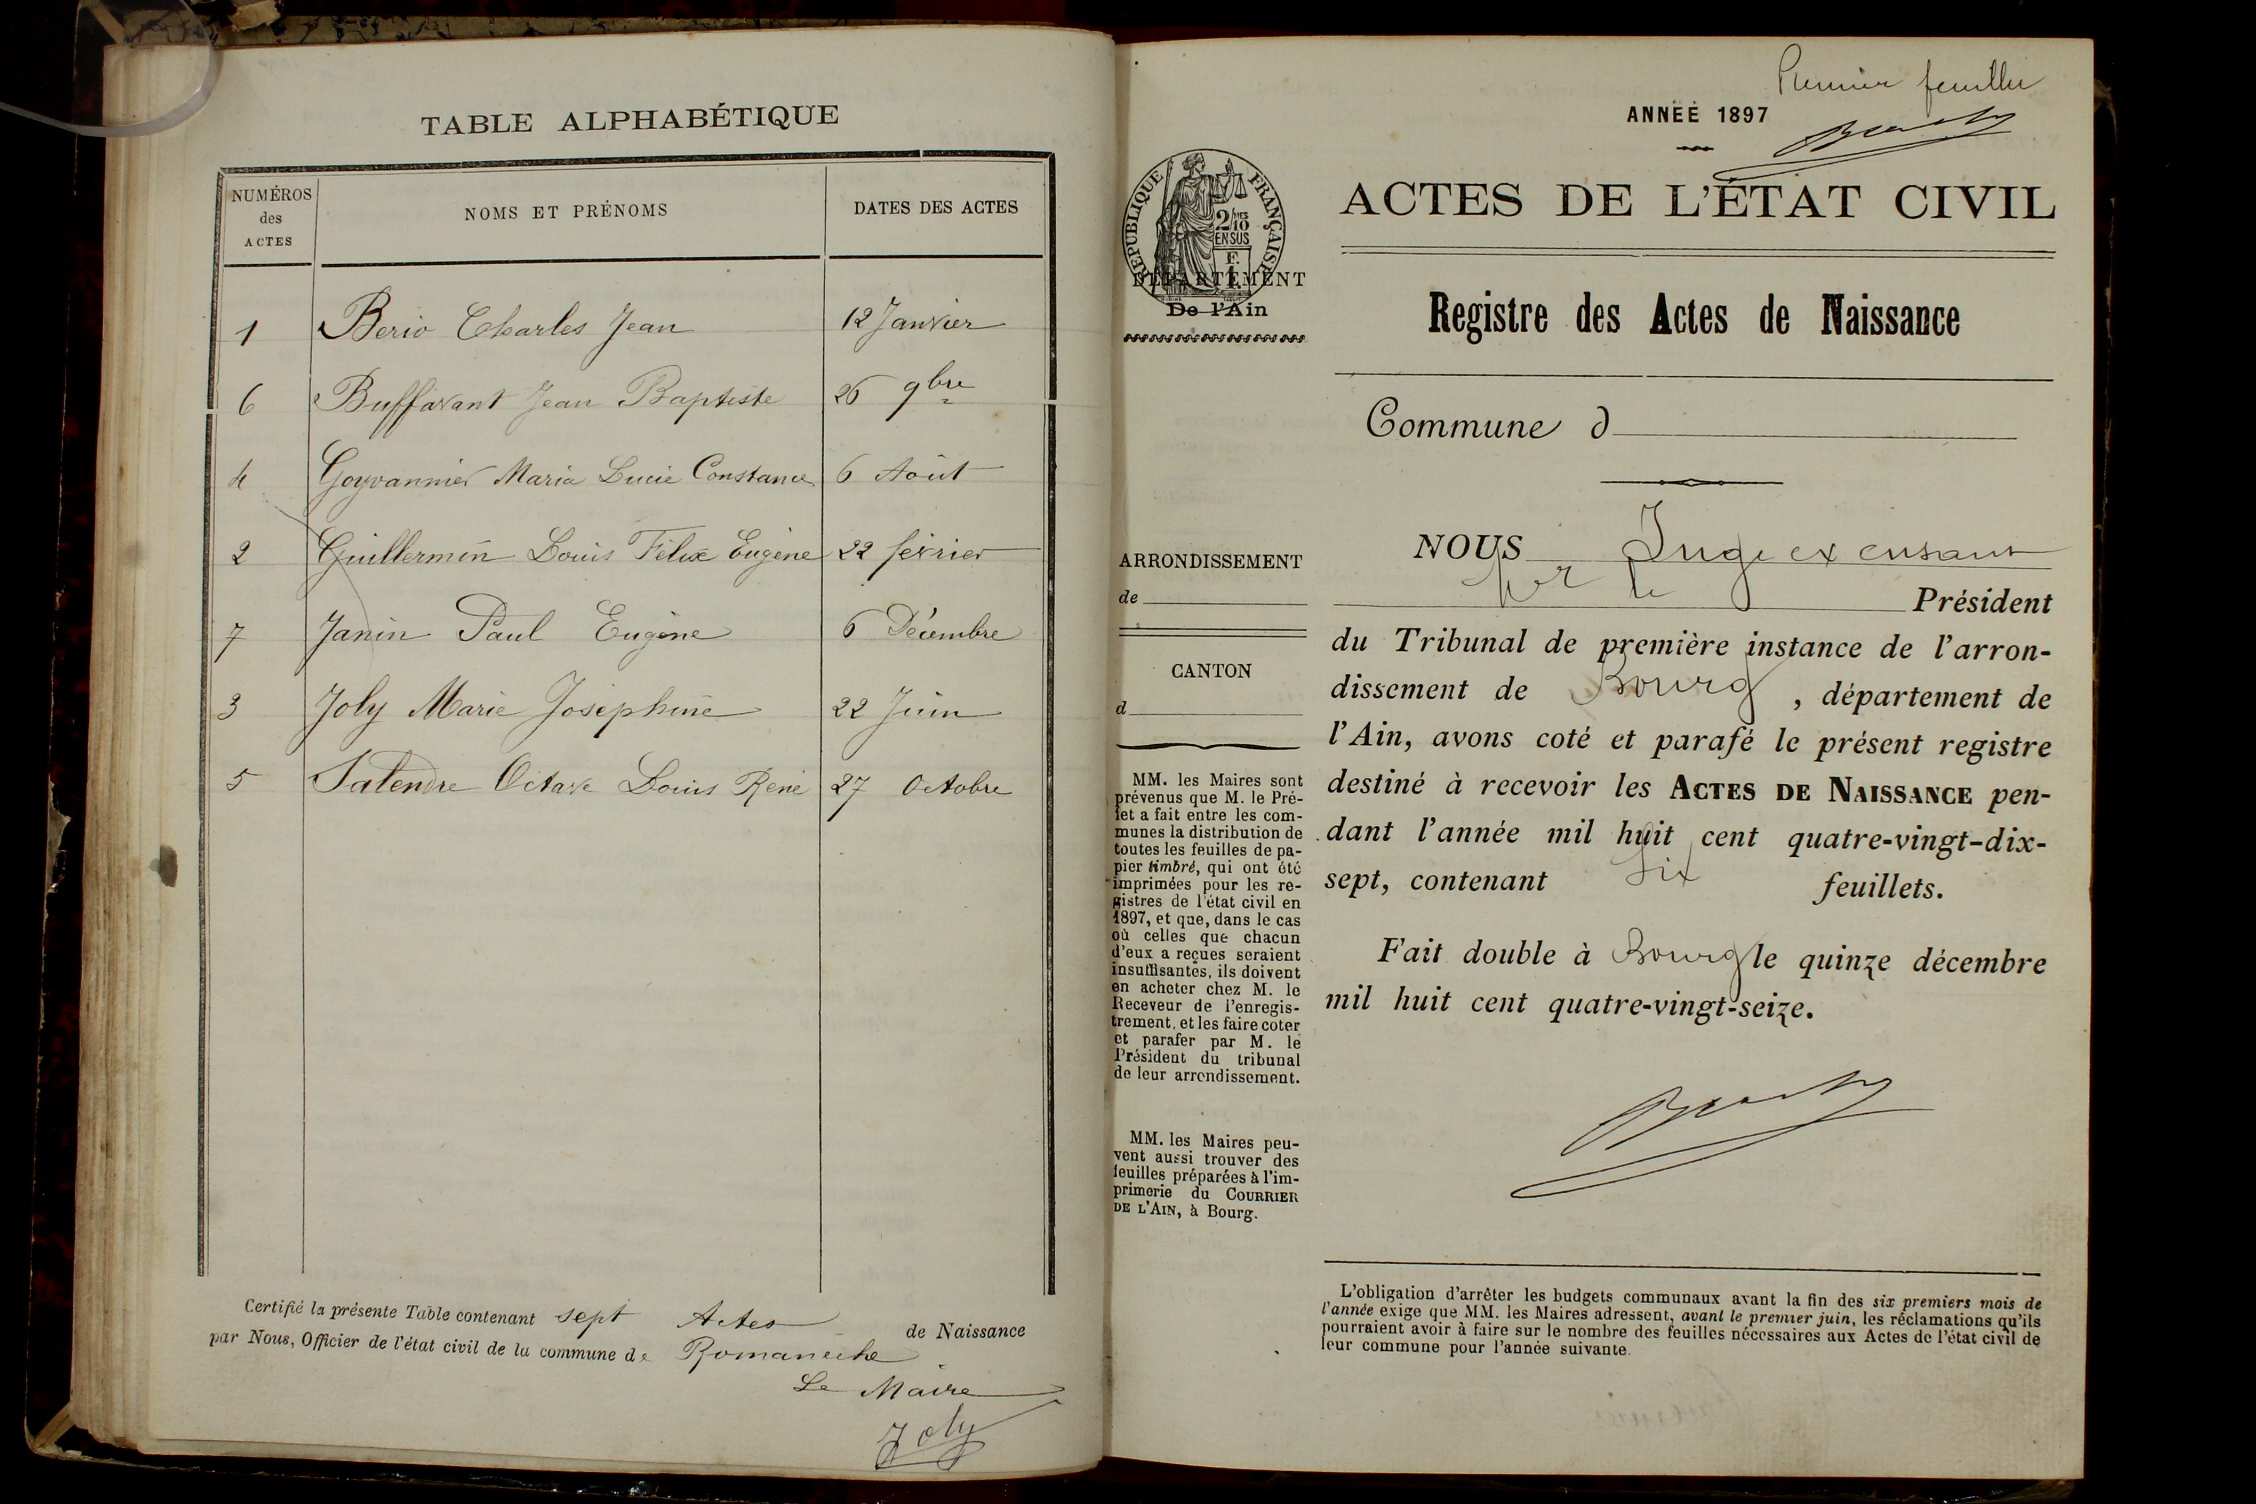 TABLE ALPHABÉTIQUE
NUMÉROS
des
ACTES
NOMS ET PRÉNOMS
DATES DES ACTES
1 Berio Charles Jean 12 Janvier
6 Buffavant Jean Baptiste 26 9bre
4 Goyvannier Maria Lucie Constance 6 Août
2 Guillermin Louis Félix Eugène 22 février
7 Janin Paul Eugène 6 Décembre
3 Joly Marie Joséphine 22 Juin
5 Salendre Octave Louis René 27 Octobre
Certifié la présente Table contenant sept Actes de Naissance
par Nous, Officier de l'état civil de la commune de Romanèche
Le Maire
Joly
Premier feuillet
ANNÉE 1897
RÉPUBLIQUE FRANÇAISE
2/10 MES
EN SUS
F.
1
DÉPARTEMENT
De l'Ain
ACTES DE L'ÉTAT CIVIL
Registre des Actes de Naissance
Commune d
ARRONDISSEMENT
de
CANTON
d
MM. les Maires sont
prévenus que M. le Pré-
fet a fait entre les com-
munes la distribution de
toutes les feuilles de pa-
pier timbré, qui ont été
imprimées pour les re-
gistres de l'état civil en
1897, et que, dans le cas
où celles que chacun
d'eux a reçues seraient
insuffisantes, ils doivent
en acheter chez M. le
Receveur de l'enregis-
trement, et les faire coter
et parafer par M. le
Président du tribunal
de leur arrondissement.
MM. les Maires peu-
vent aussi trouver des
feuilles préparées à l'im-
primerie du COURRIER
DE L'AIN, à Bourg.
NOUS Juge
le Président
du Tribunal de première instance de l'arron-
dissement de Bourg, département de
l'Ain, avons coté et parafé le présent registre
destiné à recevoir les ACTES DE NAISSANCE pen-
dant l'année mil huit cent quatre-vingt-dix-
sept, contenant Six feuillets.
Fait double à Bourg le quinze décembre
mil huit cent quatre-vingt-seize.
L'obligation d'arrêter les budgets communaux avant la fin des six premiers mois de
l'année exige que MM. les Maires adressent, avant le premier juin, les réclamations qu'ils
pourraient avoir à faire sur le nombre des feuilles nécessaires aux Actes de l'état civil de
leur commune pour l'année suivante.